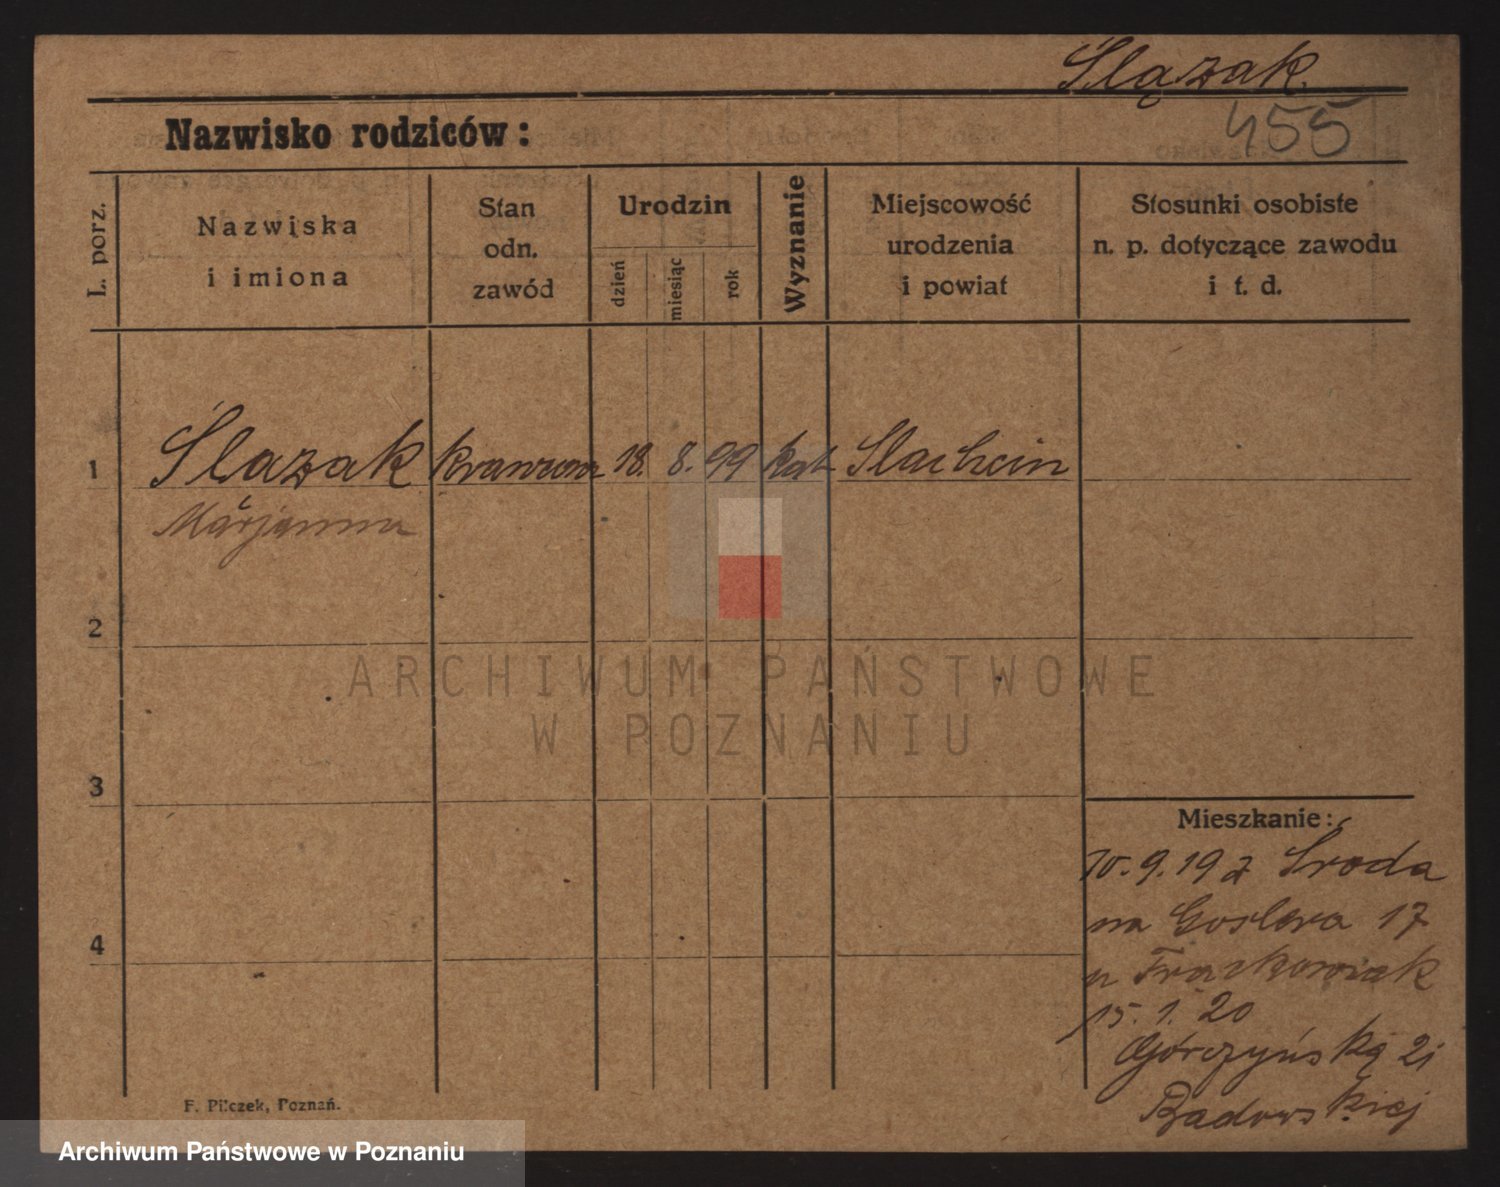 Ślązak
455
Nazwisko rodziców:
L. porz.
Nazwiska
i imiona
Stan
odn.
zawód
Urodzin
dzień
miesiąc
rok
Wyznanie
Miejscowość
urodzenia
i powiat
Stosunki osobiste
n. p. dotyczące zawodu
i t. d.
1 Ślazak 18. 8. 99 kat Slachcin
Marjanna
2
ARCHIWUM PAŃSTWOWE
W POZNANIU
3
Mieszkanie:
10.9.19 z Środa
na Goslera 17
u Frackowiak
4
15.1.20
Górczyńską 21
Badowskiej
F. Pilczek, Poznań.
Archiwum Państwowe w Poznaniu